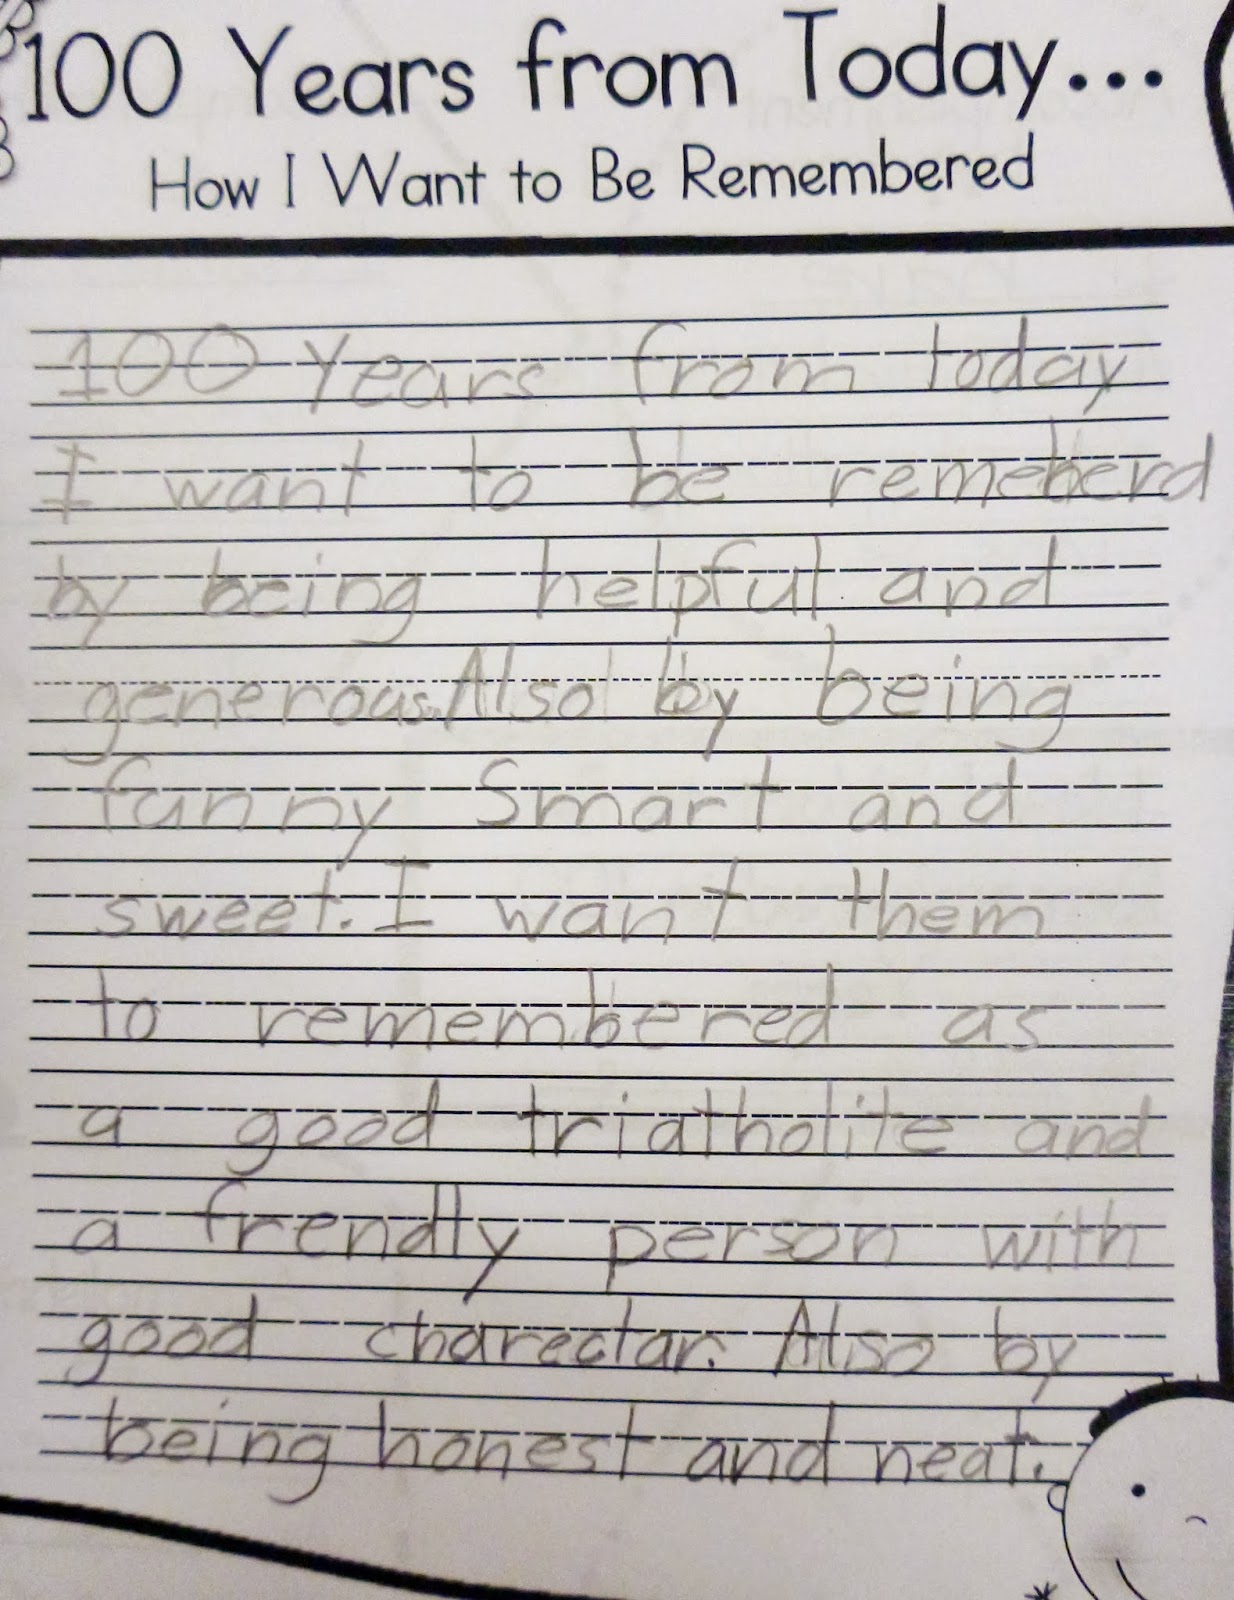 100 Years from Today...
How I Want to Be Remembered
100 Years from today
I want to be remeberd
by being helpful and
generous. Also by being
funny Smart and
sweet. I want them
to remembered as
a good triatholite and
a frendly person with
good charectar. Also by
being honest and neat.